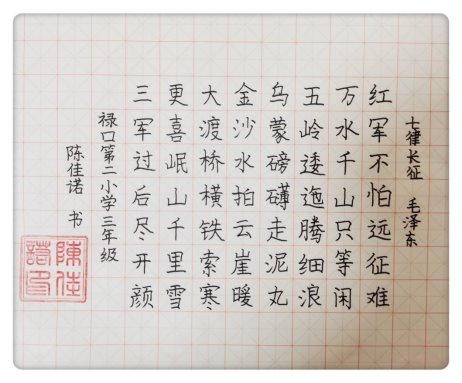 七律长征 毛泽东
红军不怕远征难
万水千山只等闲
五岭逶迤腾细浪
乌蒙磅礴走泥丸
金沙水拍云崖暖
大渡桥横铁索寒
更喜岷山千里雪
三军过后尽开颜
禄口第二小学三年级
陈佳诺 书
陳佳
諾印